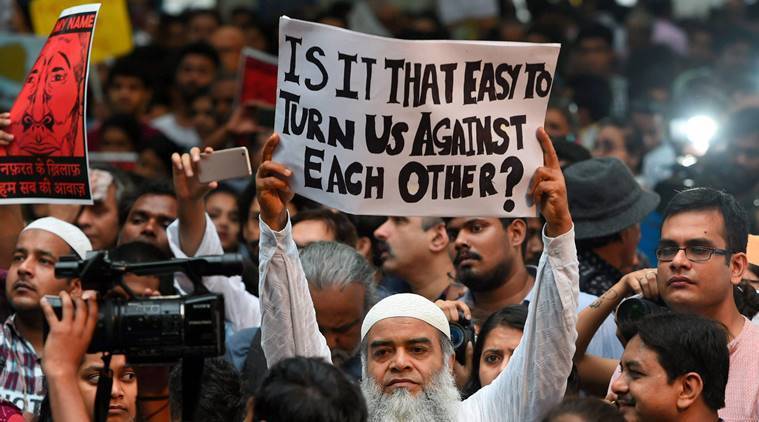 MY NAME
नफ़रत के ख़िलाफ़
हम सब की आवाज़
IS IT THAT EASY TO
TURN US AGAINST
EACH OTHER?